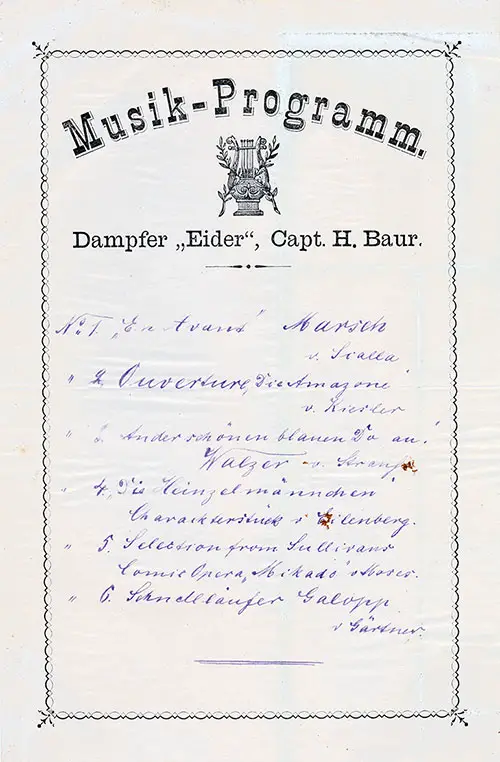 Musik-Programm.
Dampfer „Eider“, Capt. H. Baur.
No 1. „En Avant“ Marsch
v. Scalla
" 2. Ouverture, Die Amazone
v. Kiesler
" 3. An der schönen blauen Do au!
Walzer v. Strauss
" 4. „Die Heinzelmännchen“
Charackterstück v Eilenberg.
" 5. Selection from Sullivans
Comic Opera, „Mikado“ v Moses.
" 6. Schnelläufer Galopp
v Gärtner.